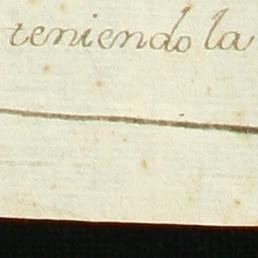 teniendo la